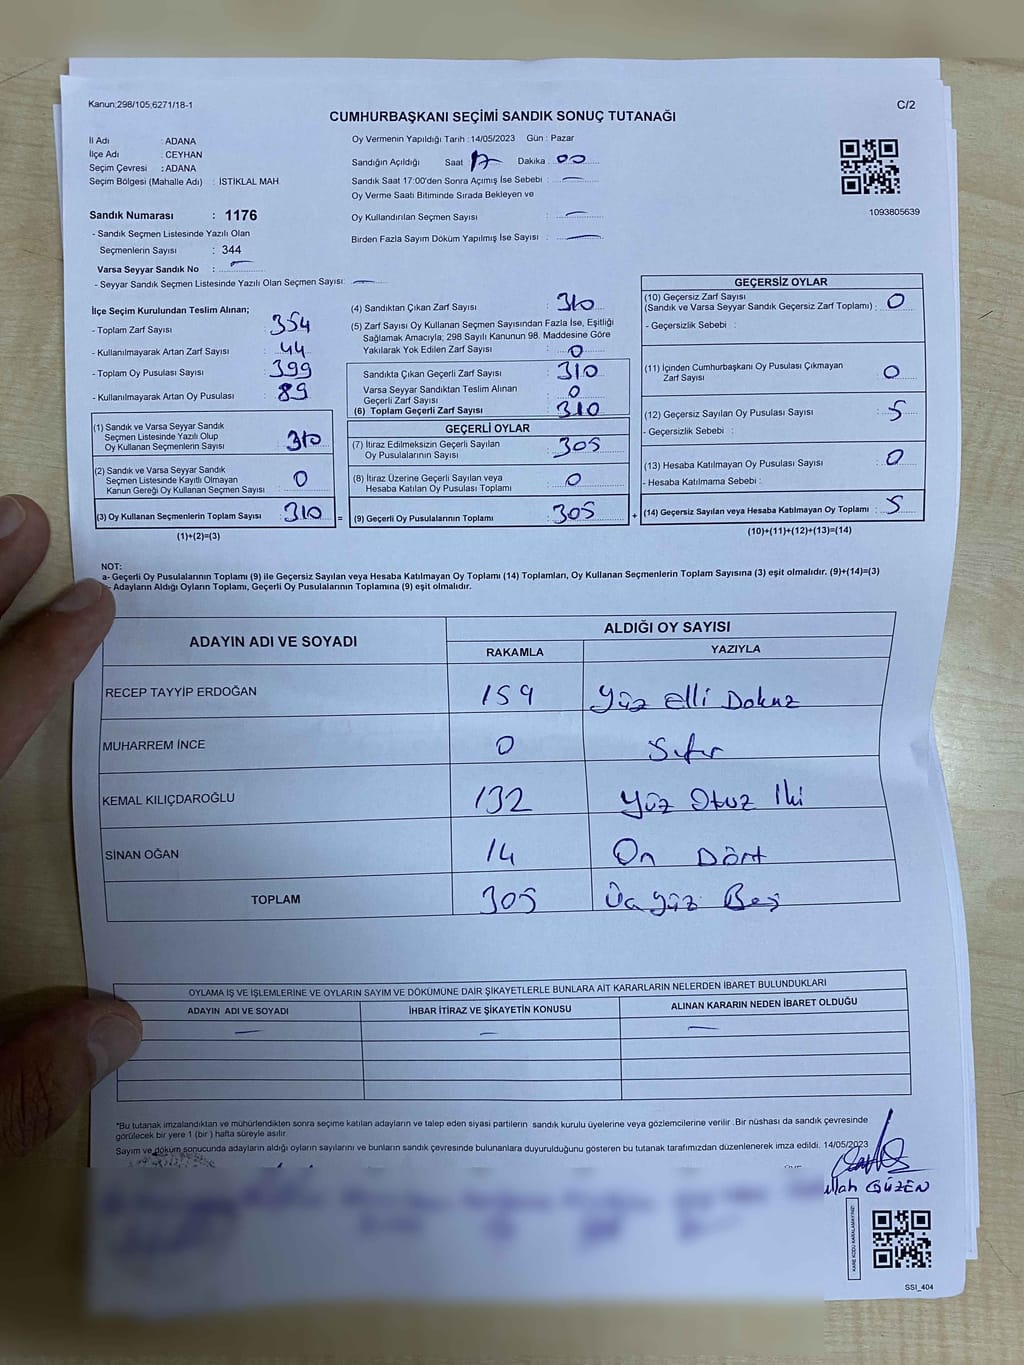 Kanun:298/105,6271/18-1
C/2
CUMHURBAŞKANI SEÇİMİ SANDIK SONUÇ TUTANAĞI
İl Adı : ADANA
İlçe Adı : CEYHAN
Seçim Çevresi : ADANA
Seçim Bölgesi (Mahalle Adı) : İSTİKLAL MAH
Sandık Numarası : 1176
- Sandık Seçmen Listesinde Yazılı Olan
Seçmenlerin Sayısı : 344
Varsa Seyyar Sandık No :
- Seyyar Sandık Seçmen Listesinde Yazılı Olan Seçmen Sayısı:
Oy Vermenin Yapıldığı Tarih : 14/05/2023 Gün : Pazar
Sandığın Açıldığı Saat 17 Dakika : 00
Sandık Saat 17:00'den Sonra Açımış İse Sebebi :
Oy Verme Saati Bitiminde Sırada Bekleyen ve
Oy Kullandırılan Seçmen Sayısı :
Birden Fazla Sayım Döküm Yapılmış İse Sayısı :
1093805639
İlçe Seçim Kurulundan Teslim Alınan;
- Toplam Zarf Sayısı : 354
- Kullanılmayarak Artan Zarf Sayısı : 44
- Toplam Oy Pusulası Sayısı : 399
- Kullanılmayarak Artan Oy Pusulası : 89
(1) Sandık ve Varsa Seyyar Sandık
Seçmen Listesinde Yazılı Olup
Oy Kullanan Seçmenlerin Sayısı : 310
(2) Sandık ve Varsa Seyyar Sandık
Seçmen Listesinde Kayıtlı Olmayan
Kanun Gereği Oy Kullanan Seçmen Sayısı : 0
(3) Oy Kullanan Seçmenlerin Toplam Sayısı : 310
(1)+(2)=(3)
(4) Sandıktan Çıkan Zarf Sayısı : 310
(5) Zarf Sayısı Oy Kullanan Seçmen Sayısından Fazla İse, Eşitliği
Sağlamak Amacıyla; 298 Sayılı Kanunun 98. Maddesine Göre
Yakılarak Yok Edilen Zarf Sayısı : 0
Sandıkta Çıkan Geçerli Zarf Sayısı : 310
Varsa Seyyar Sandıktan Teslim Alınan
Geçerli Zarf Sayısı : 0
(6) Toplam Geçerli Zarf Sayısı : 310
GEÇERLİ OYLAR
(7) İtiraz Edilmeksizin Geçerli Sayılan
Oy Pusulalarının Sayısı : 305
(8) İtiraz Üzerine Geçerli Sayılan veya
Hesaba Katılan Oy Pusulası Toplamı : 0
= (9) Geçerli Oy Pusulalarının Toplamı : 305
GEÇERSİZ OYLAR
(10) Geçersiz Zarf Sayısı
(Sandık ve Varsa Seyyar Sandık Geçersiz Zarf Toplamı) : 0
- Geçersizlik Sebebi :
(11) İçinden Cumhurbaşkanı Oy Pusulası Çıkmayan
Zarf Sayısı : 0
(12) Geçersiz Sayılan Oy Pusulası Sayısı : 5
- Geçersizlik Sebebi :
(13) Hesaba Katılmayan Oy Pusulası Sayısı : 0
- Hesaba Katılmama Sebebi :
+ (14) Geçersiz Sayılan veya Hesaba Katılmayan Oy Toplamı : 5
(10)+(11)+(12)+(13)=(14)
NOT:
a- Geçerli Oy Pusulalarının Toplamı (9) ile Geçersiz Sayılan veya Hesaba Katılmayan Oy Toplamı (14) Toplamları, Oy Kullanan Seçmenlerin Toplam Sayısına (3) eşit olmalıdır. (9)+(14)=(3)
- Adayların Aldığı Oyların Toplamı, Geçerli Oy Pusulalarının Toplamına (9) eşit olmalıdır.
ADAYIN ADI VE SOYADI
ALDIĞI OY SAYISI
RAKAMLA YAZIYLA
RECEP TAYYİP ERDOĞAN 159 Yüz Elli Dokuz
MUHARREM İNCE 0 Sıfır
KEMAL KILIÇDAROĞLU 132 Yüz Otuz İki
SİNAN OĞAN 14 On Dört
TOPLAM 305 Üç yüz Beş
OYLAMA İŞ VE İŞLEMLERİNE VE OYLARIN SAYIM VE DÖKÜMÜNE DAİR ŞİKAYETLERLE BUNLARA AİT KARARLARIN NELERDEN İBARET BULUNDUKLARI
ADAYIN ADI VE SOYADI İHBAR İTİRAZ VE ŞİKAYETİN KONUSU ALINAN KARARIN NEDEN İBARET OLDUĞU
*Bu tutanak imzalandıktan ve mühürlendikten sonra seçime katılan adayların ve talep eden siyasi partilerin sandık kurulu üyelerine veya gözlemcilerine verilir .Bir nüshası da sandık çevresinde
görülecek bir yere 1 (bir) hafta süreyle asılır.
Sayım ve döküm sonucunda adayların aldığı oyların sayılarını ve bunların sandık çevresinde bulunanlara duyurulduğunu gösteren bu tutanak tarafımızdan düzenlenerek imza edildi. 14/05/2023
ullah GÜZEN
KARE KODU KARALAMAYINIZ!
SSI_404